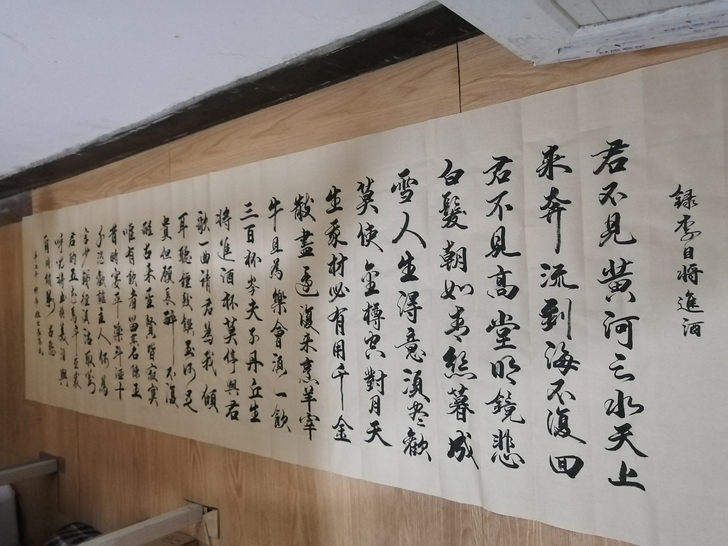 録李白將進酒
君不見黄河之水天上
来奔流到海不復回
君不見高堂明鏡悲
白髮朝如青絲暮成
雪人生得意須盡歡
莫使金樽空對月天
生我材必有用千金
散盡還復来烹羊宰
牛且為樂會須一飲
三百杯岑夫子丹丘生
將進酒杯莫停與君
歌一曲請君為我傾
耳聽鐘鼓饌玉何足
貴但願長醉不復
醒古来聖賢皆寂寞
惟有飲者留其名陳王
昔時宴平樂斗酒十
千恣歡謔主人何為
言少錢徑須沽取對
君酌五花馬千金裘
呼兒將出換美酒與
爾同銷萬古愁